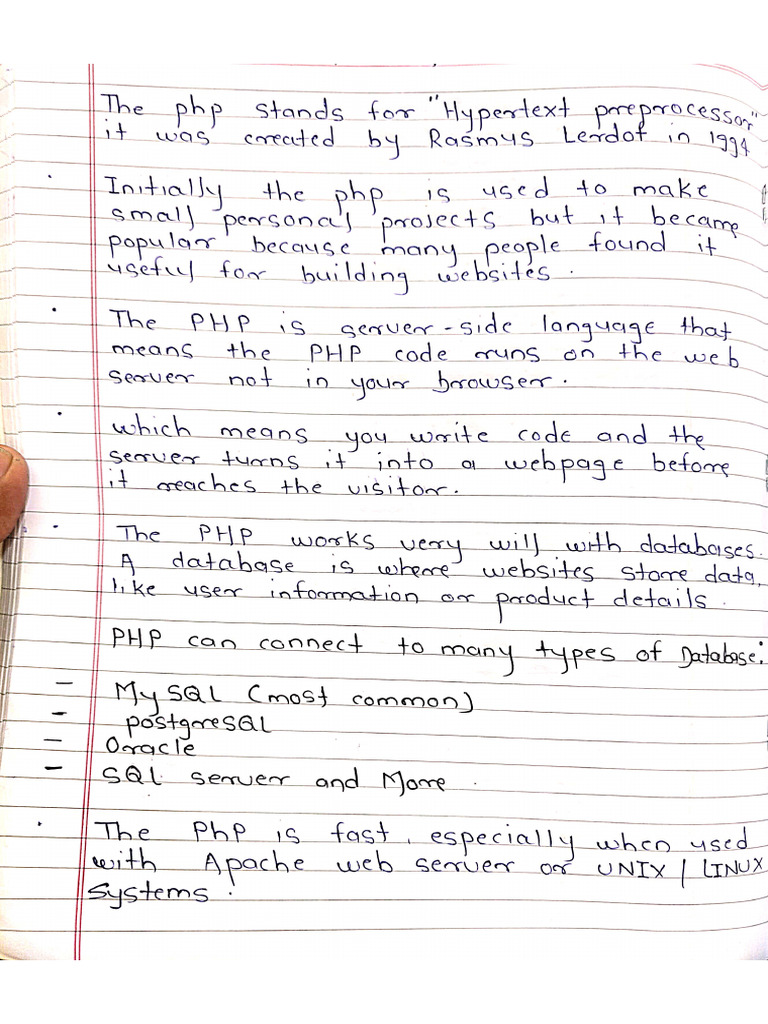 The php stands for "Hypertext preprocessor"
it was created by Rasmus Lerdof in 1994
• Initially the php is used to make
small personal projects but it became
popular because many people found it
useful for building websites.
• The PHP is server-side language that
means the PHP code runs on the web
server not in your browser.
• which means you write code and the
server turns it into a webpage before
it reaches the visitor.
• The PHP works very will with databases.
A database is where websites store data,
like user information or product details.
PHP can connect to many types of Database:
– MySQL (most common)
– postgreSQL
– Oracle
– SQL server and More.
• The PhP is fast, especially when used
with Apache web server or UNIX / LINUX
Systems.